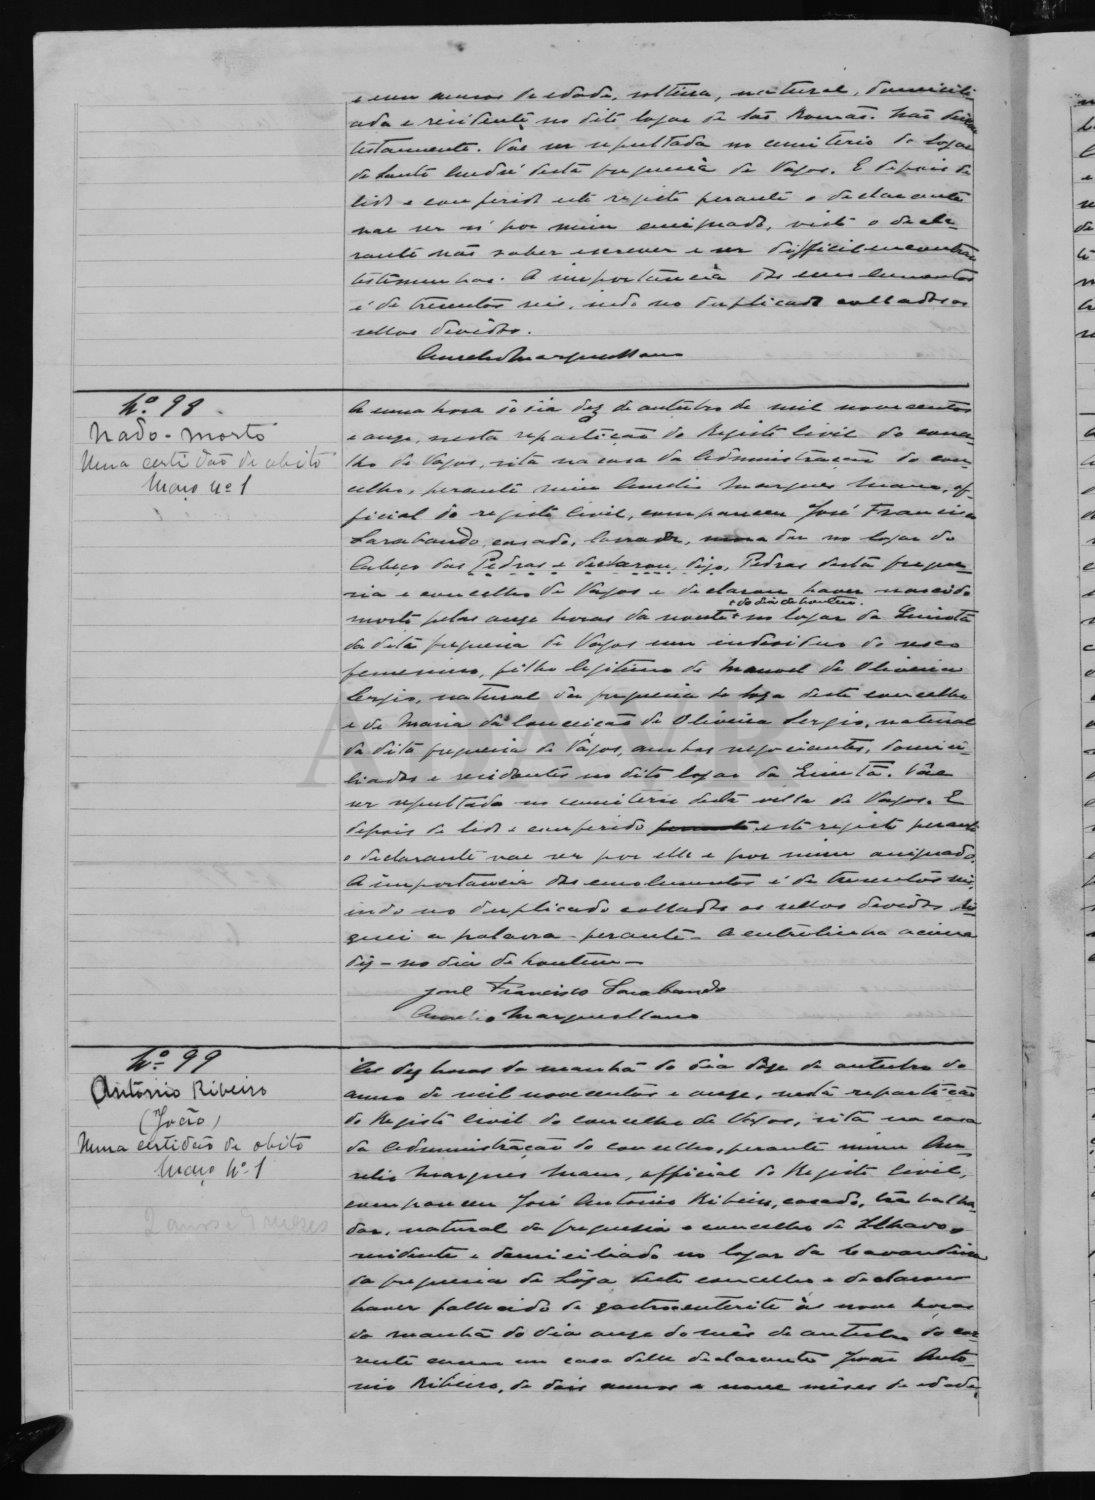 e um annos de edade, solteira, natural, domicili-
ada e residente no dito logar de São Romão. Não deixou
testamento. Vae ser sepultada no cemiterio do logar
de Santo André desta freguesia de Vagos. E depois de
lido e conferido este registo perante o declarante
vae ser só por mim assignado, visto o decla-
rante não saber escrever e ser difficil encontrar
testemunhas. A importancia dos emolumentos
é de trezentos reis, indo no duplicado collados os
sellos devidos.
Aurelio Marques Mano
Nº 98
Nado-morto
Uma certidão de obito
Maço nº 1
A uma hora do dia dez de outubro de mil novecentos
e onze, nesta repartição do Registo Civil do conce-
lho de Vagos, sita na casa da Administração do con-
celho, perante mim Aurelio Marques Mano, of-
ficial do registo civil, compareceu José Francisco
Sarabando, casado, lavrador, morador no logar do
Cabeço das Pedras e declarou, digo, Pedras desta fregue-
sia e concelho de Vagos e declarou haver nascido
+ do dia de hontem.
morto pelas onze horas da noute + no logar da Quintã
da dita freguesia de Vagos um individuo do sexo
femenino, filho legitimo de Manoel de Oliveira
Sergio, natural da freguesia de Soza deste concelho
e de Maria da Conceição de Oliveira Sergio, natural
da dita freguesia de Vagos, ambos negociantes, domici-
liados e residentes no dito logar da Quintã. Vae
ser sepultado no cemiterio desta villa de Vagos. E
depois de lido e conferido perante este registo perante
o declarante vae ser por elle e por mim assignado.
A importancia dos emolumentos é de trezentos reis,
indo no duplicado collados os sellos devidos. Ris-
quei a palavra - perante - A entrelinha acima
diz - no dia de hontem -
José Francisco Sarabando
Aurelio Marques Mano
Nº 99
Antonio Ribeiro
(João)
Uma certidão de obito
Maço Nº 1
2 annos e 9 mezes
Ás dez horas da manhã do dia doze de outubro do
anno de mil novecentos e onze, nesta repartição
do Registo Civil do concelho de Vagos, sita na casa
da Administração do concelho, perante mim Au-
relio Marques Mano, official do Registo Civil,
compareceu José Antonio Ribeiro, casado, trabalha-
dor, natural da freguesia e concelho de Ilhavo,
residente e domiciliado no logar da
da freguesia de Soza deste concelho e declarou
haver fallecido de gastroenterite ás nove horas
da manhã do dia onze do mês de outubro do cor-
rente anno em casa delle declarante João Anto-
nio Ribeiro, de dois annos e nove mêses de edade,
ADAVR